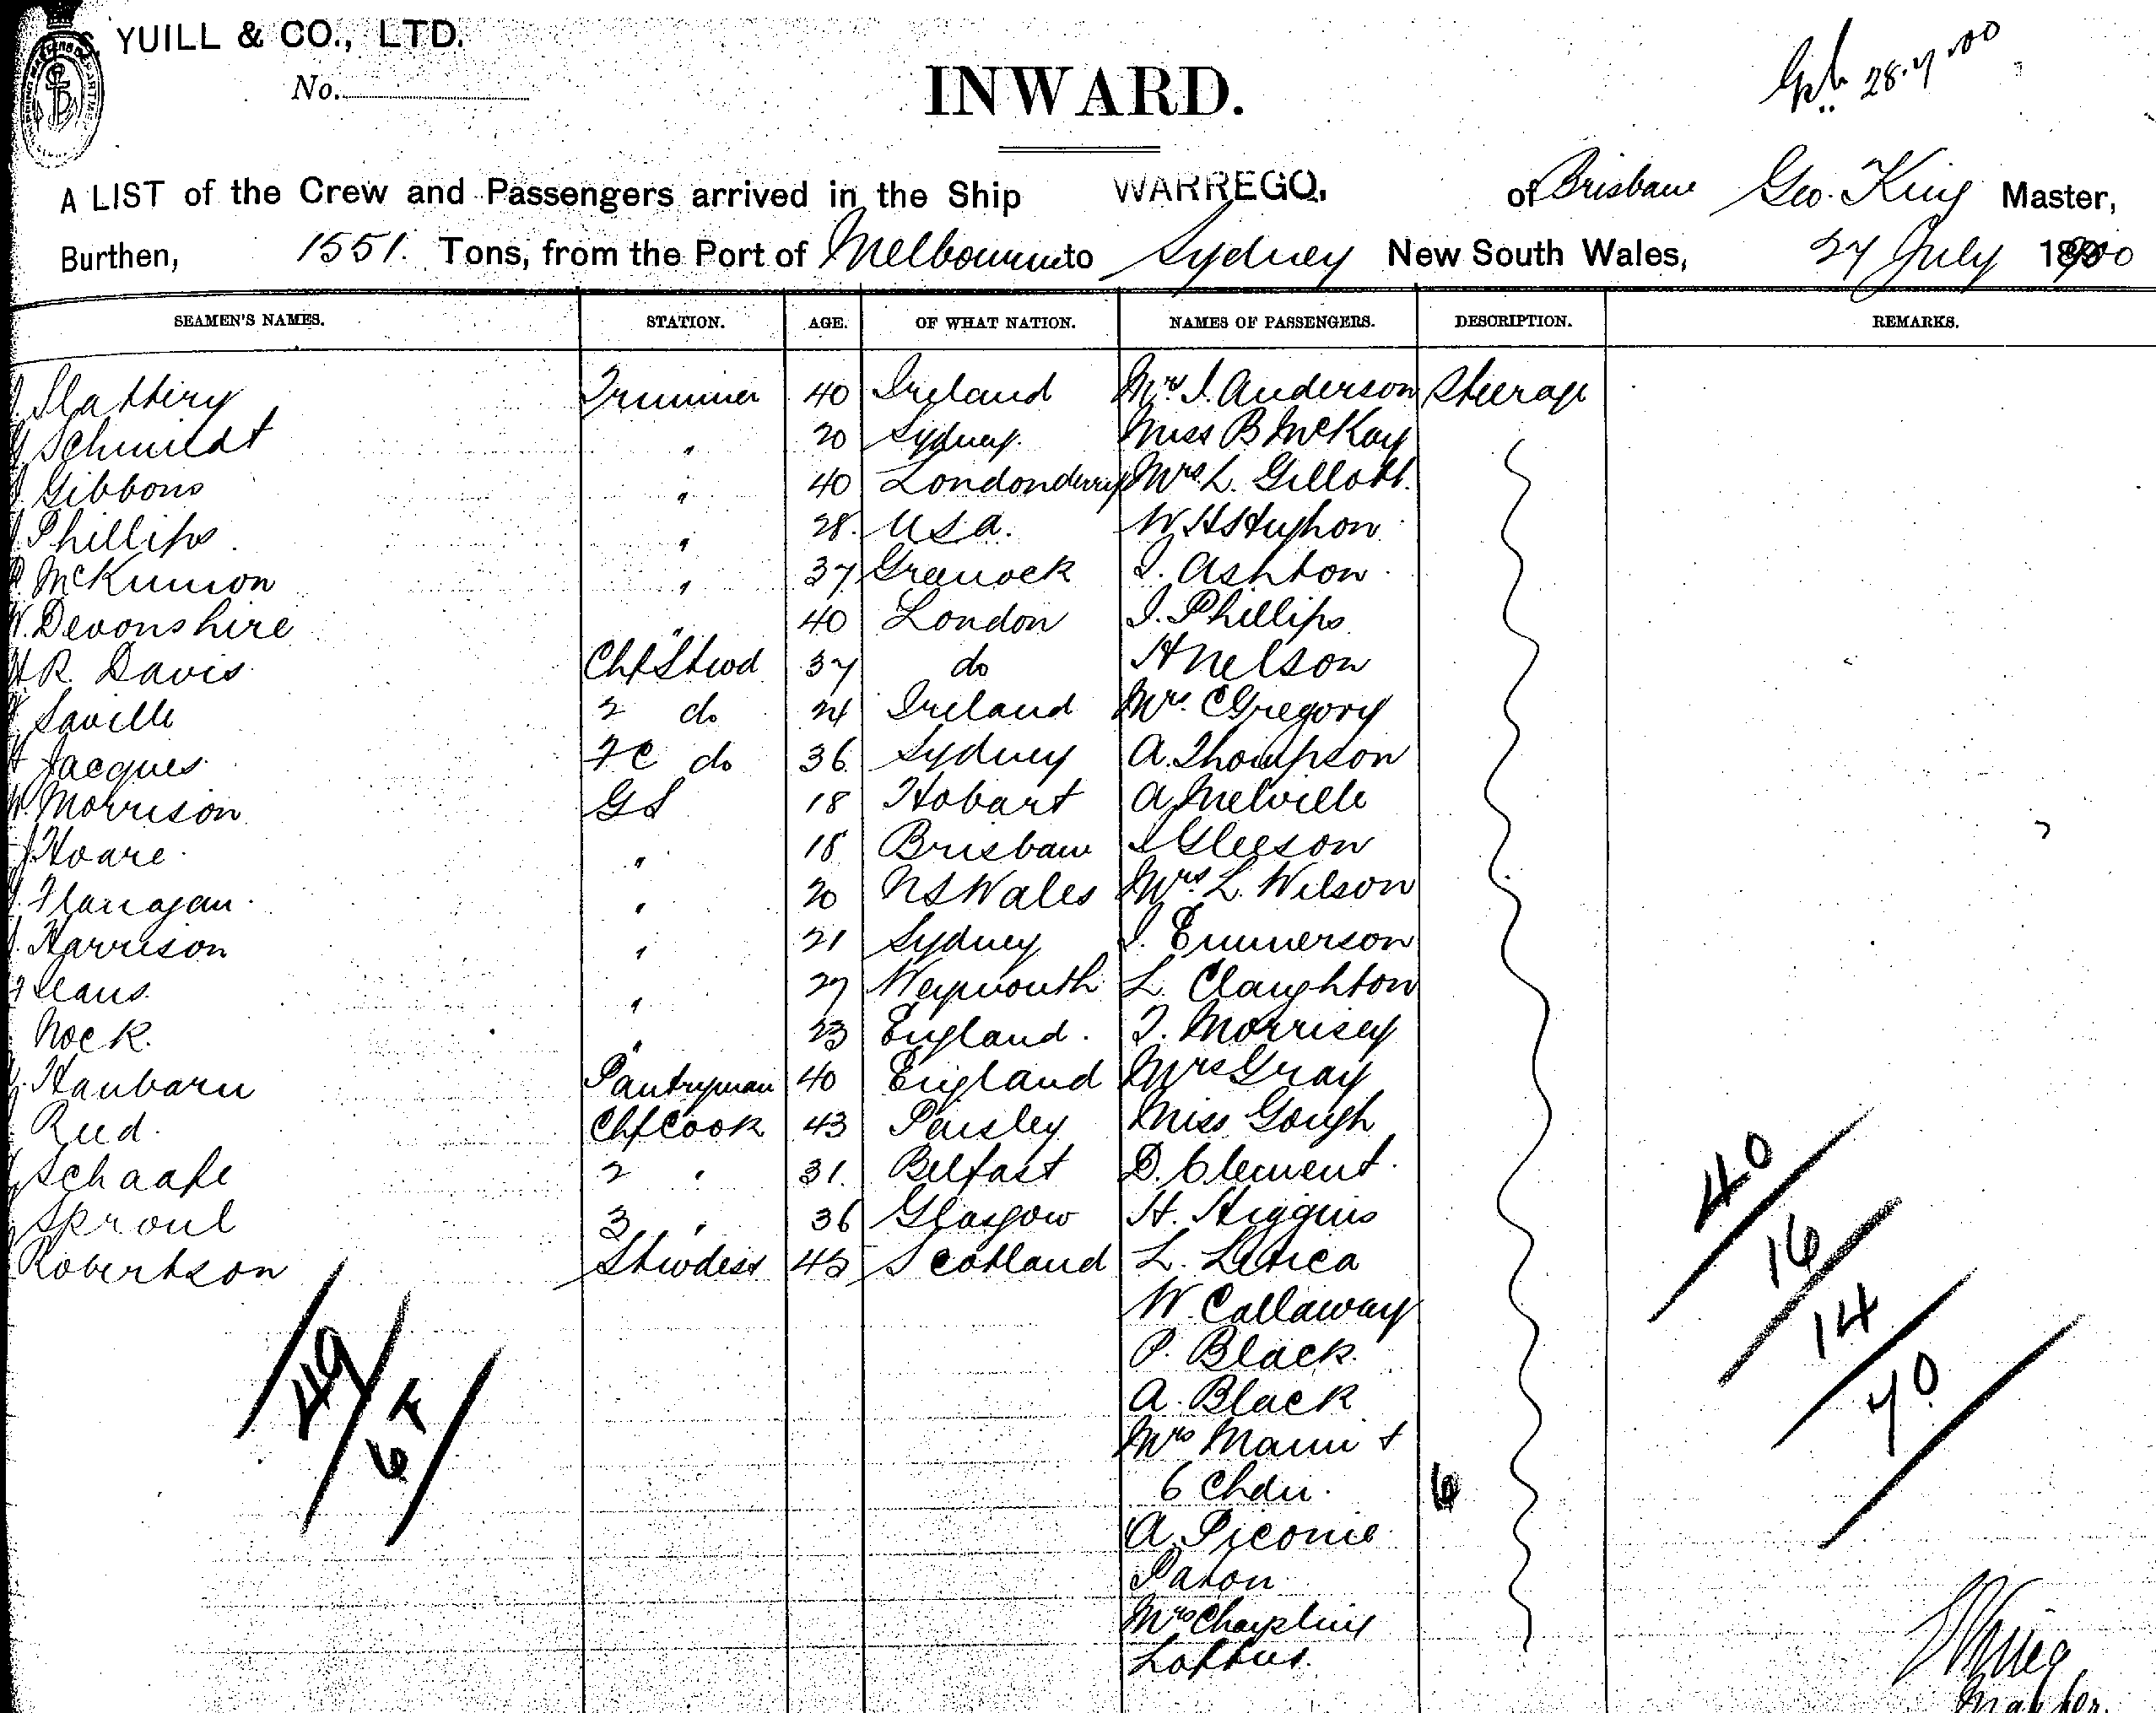 YUILL & CO., LTD.
No.
INWARD.
28.7.00
A LIST of the Crew and Passengers arrived in the Ship WARREGO, of Brisbane Geo. King Master,
Burthen, 1551. Tons, from the Port of Melbourne to Sydney New South Wales, 27 July 1900
SEAMEN'S NAMES. STATION. AGE. OF WHAT NATION. NAMES OF PASSENGERS. DESCRIPTION. REMARKS.
Slattery Trimmer 40 Ireland Mrs J. Anderson Steerage
Schmidt " 20 Sydney Miss B McKay
Gibbons " 40 Londonderry Mrs L. Gillott
Phillips " 28 USA. W H Hughon
McKinnon " 37 Greenock J. Ashton
W. Devonshire " 40 London J. Phillips
H R. Davis Chf Stwd 37 do H Nelson
Saville 2 do 24 Ireland Mrs C Gregory
Jacques FC do 36 Sydney A. Thompson
W. Morrison GS 18 Hobart A Melville
J Hoare " 18 Brisbane J Gleeson
Flanagan " 20 NSWales Mrs L. Wilson
Harrison " 21 Sydney J. Emmerson
" 27 Weymouth L Claughton
Nock. " 23 England. T. Morrisey
Hanbarn Pantryman 40 England Mrs Gray
Reid. Chf Cook 43 Paisley Miss Gough
Schaafe 2 " 31. Belfast D. Clement.
Sproul 3 " 36 Glasgow H. Higgins
Robertson Stwdess 45 Scotland L. Letica
W. Callaway
P. Black.
A. Black
Mrs Mann +
6 Chdn. 6
A. Piconie
Paton
Mrs Chaplin
Loftus.
40
16
14
70
49
6 F
King
Master.